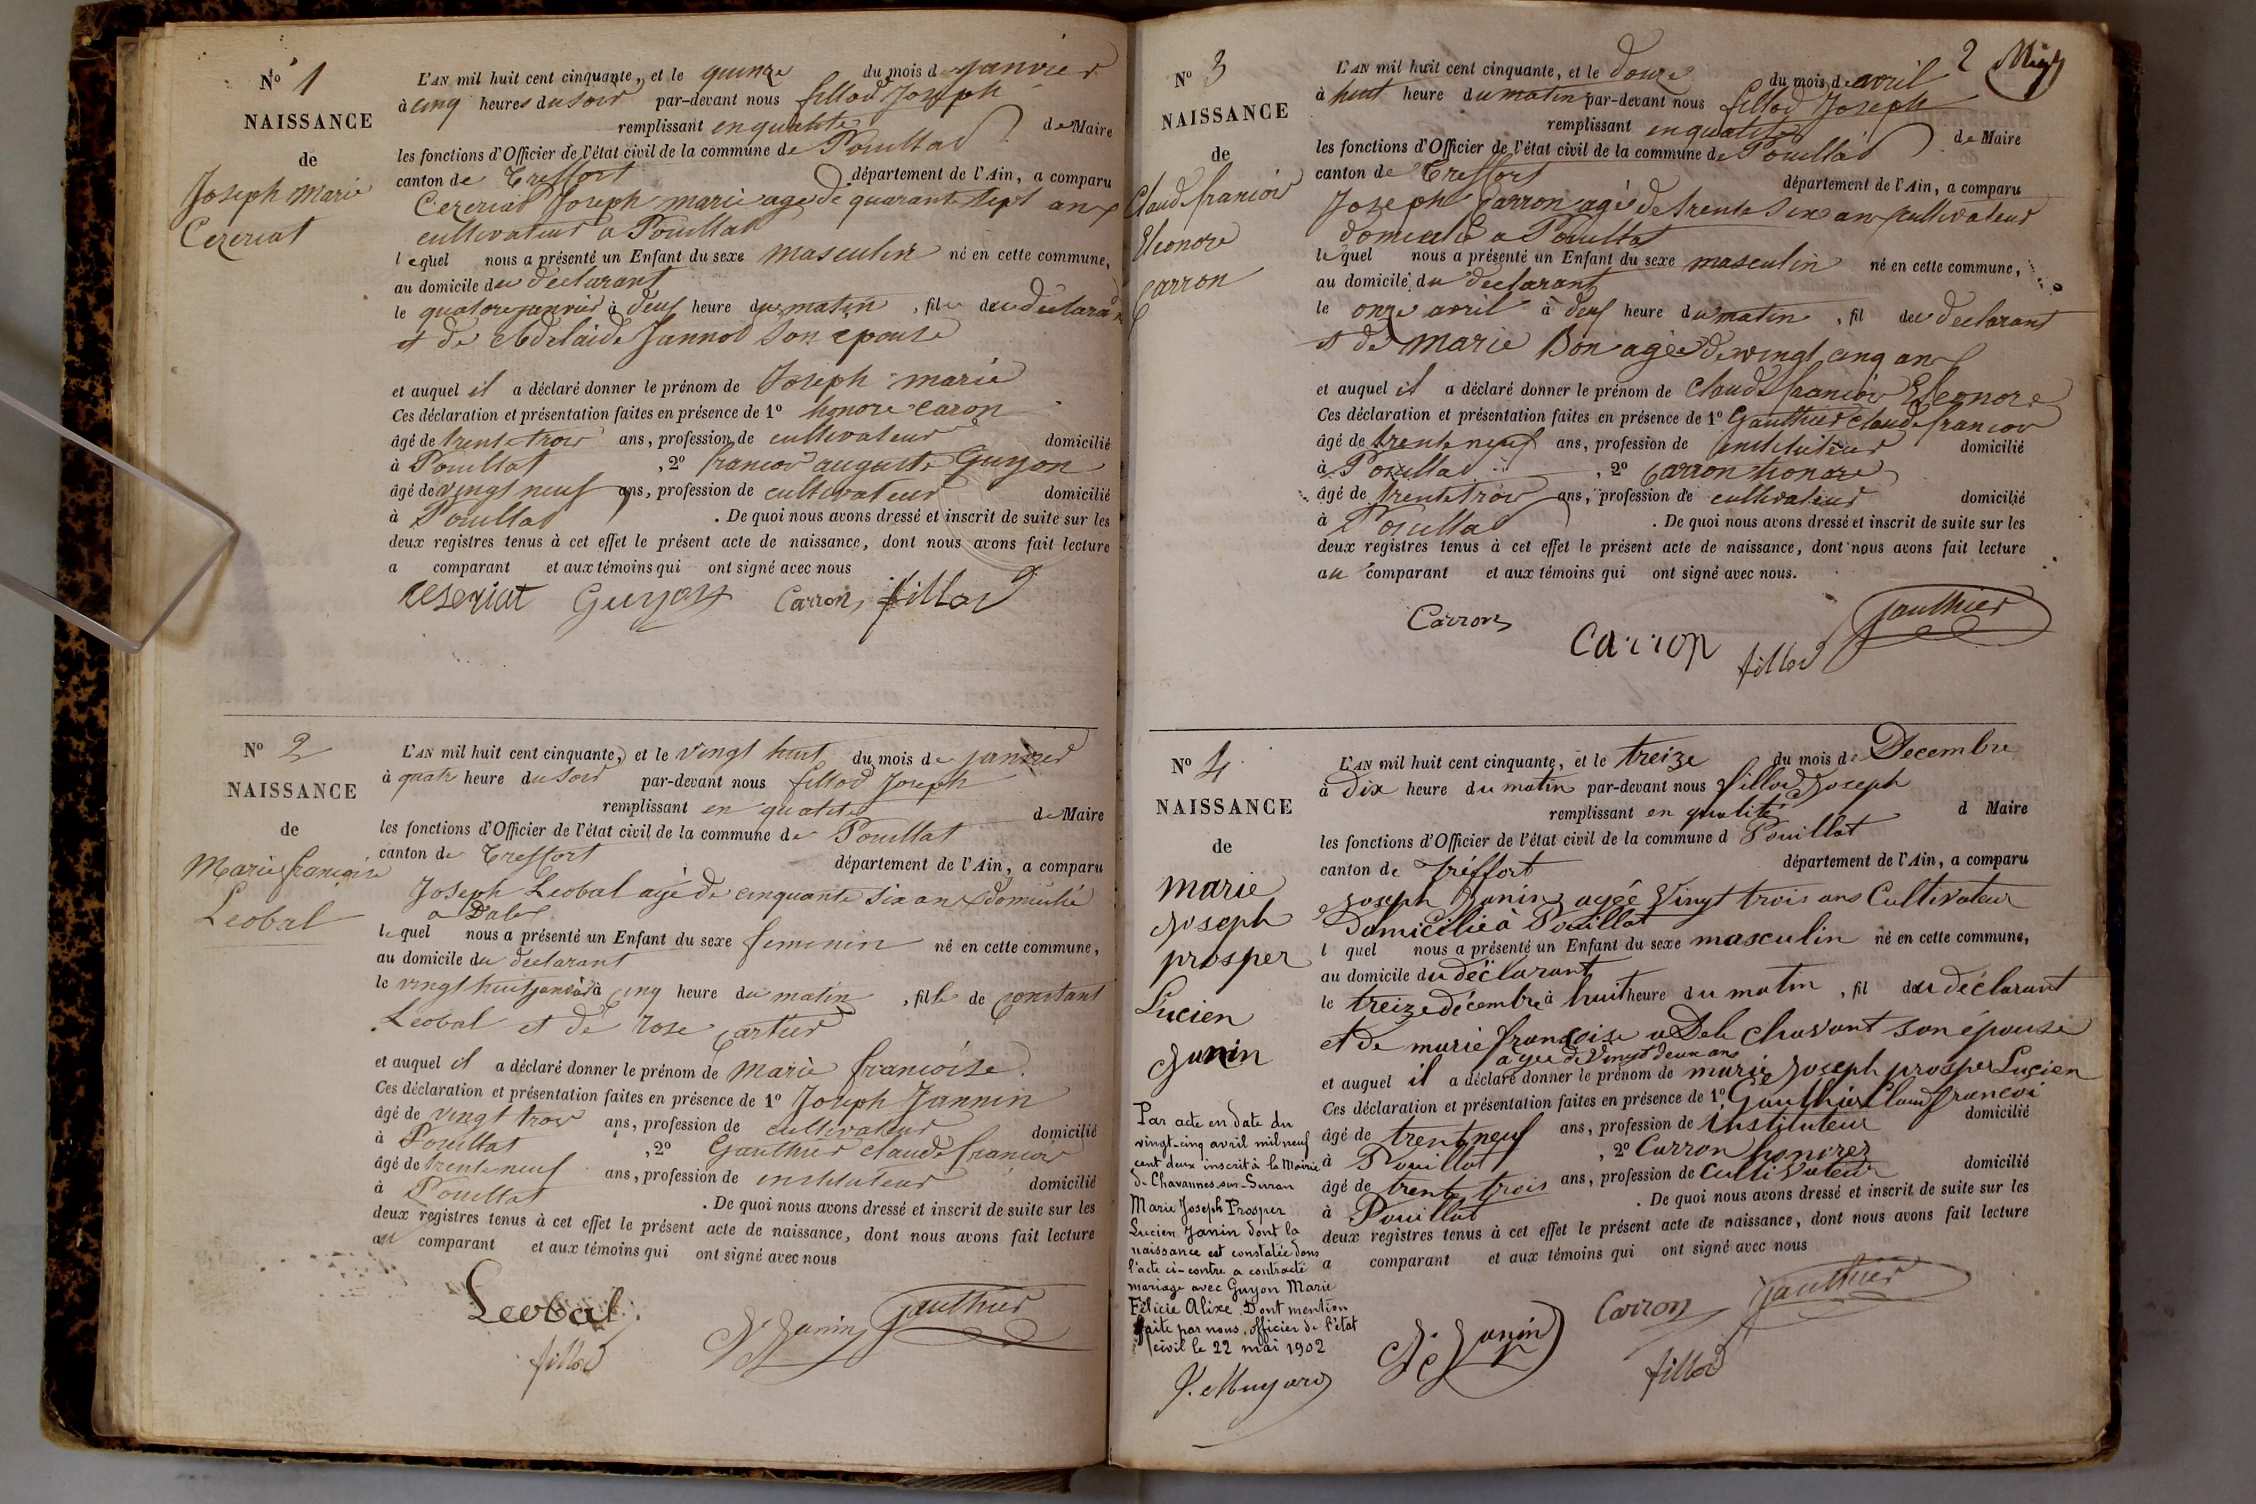 Nº 1
NAISSANCE
de
Joseph Marie
Cereriat
L'AN mil huit cent cinquante, et le quinze du mois de janvier
à cinq heures du soir par-devant nous fillod Joseph
remplissant en qualité de Maire
les fonctions d'Officier de l'état civil de la commune de Pouillat
canton de Treffort département de l'Ain, a comparu
Cereriat Joseph marie agé de quarante sept ans
cultivateur a Pouillat
lequel nous a présenté un Enfant du sexe masculin né en cette commune,
au domicile du déclarant
le quatorze janvier à deuf heure du matin, fils du déclarant
et de Adelaide Jannod son epouse
et auquel il a déclaré donner le prénom de Joseph marie
Ces déclaration et présentation faites en présence de 1º honore caron
âgé de trente trois ans, profession de cultivateur domicilié
à Pouillat, 2º francois auguste Guyon
âgé de vingt neuf ans, profession de cultivateur domicilié
à Pouillat. De quoi nous avons dressé et inscrit de suite sur les
deux registres tenus à cet effet le présent acte de naissance, dont nous avons fait lecture
a comparant et aux témoins qui ont signé avec nous
ceseriat Guyon Carron fillod
Nº 2
NAISSANCE
de
Marie francoise
Leobal
L'AN mil huit cent cinquante, et le vingt huit du mois de janvier
à quatre heure du soir par-devant nous fillod Joseph
remplissant en qualité de Maire
les fonctions d'Officier de l'état civil de la commune de Pouillat
canton de Treffort département de l'Ain, a comparu
Joseph Leobal agé de cinquante six ans domicilié
a
lequel nous a présenté un Enfant du sexe feminin né en cette commune,
au domicile du declarant
le vingt huit janvier à cinq heure du matin, fille de constant
Leobal et de rose cartier
et auquel il a déclaré donner le prénom de Marie francoise
Ces déclaration et présentation faites en présence de 1º Joseph Jannin
âgé de vingt trois ans, profession de cultivateur domicilié
à Pouillat, 2º Gauthier claude francois
âgé de trente neuf ans, profession de instituteur domicilié
à Pouillat. De quoi nous avons dressé et inscrit de suite sur les
deux registres tenus à cet effet le présent acte de naissance, dont nous avons fait lecture
au comparant et aux témoins qui ont signé avec nous
Leobal Janin Gauthier
fillod
2
Nº 3
NAISSANCE
de
Claude francois
Eleonore
Carron
L'AN mil huit cent cinquante, et le douze du mois de avril
à huit heure du matin par-devant nous fillod Joseph
remplissant en qualité de Maire
les fonctions d'Officier de l'état civil de la commune de Pouillat
canton de Treffort département de l'Ain, a comparu
Joseph Carron agé de trente six ans cultivateur
domicilié a Pouillat
lequel nous a présenté un Enfant du sexe masculin né en cette commune,
au domicile du declarant
le onze avril à deuf heure du matin, fil du declarant
et de Marie Bon agée de vingt cinq ans
et auquel il a déclaré donner le prénom de claude francois Eleonore
Ces déclaration et présentation faites en présence de 1º Gauthier claude francois
âgé de trente neuf ans, profession de instituteur domicilié
à Pouillat, 2º Carron honore
âgé de trente trois ans, profession de cultivateur domicilié
à Pouillat. De quoi nous avons dressé et inscrit de suite sur les
deux registres tenus à cet effet le présent acte de naissance, dont nous avons fait lecture
au comparant et aux témoins qui ont signé avec nous.
Carron Carron fillod Gauthier
Nº 4
NAISSANCE
de
marie
Joseph
prosper
Lucien
Janin
Par acte en date du
vingt-cinq avril mil neuf
cent deux inscrit à la Mairie
de Chavannes-sur-Suran
Marie Joseph Prosper
Lucien Janin dont la
naissance est constatée dans
l'acte ci-contre a contracté
mariage avec Guyon Marie
Félicie Alixe. Dont mention
faite par nous, officier de l'état
civil le 22 mai 1902
L'AN mil huit cent cinquante, et le treize du mois de Decembre
à Dix heure du matin par-devant nous fillod Joseph
remplissant en qualité d Maire
les fonctions d'Officier de l'état civil de la commune d Pouillat
canton de Tréffort département de l'Ain, a comparu
Joseph Janin agée Vingt trois ans Cultivateur
Domicilié à Pouillat
l quel nous a présenté un Enfant du sexe masculin né en cette commune,
au domicile du déclarant
le treize décembre à huit heure du matin, fil du déclarant
et de marie françoise aDele chavant son épouse
agée de Vingt deux ans
et auquel il a déclaré donner le prénom de marie Joseph prosper Lucien
Ces déclaration et présentation faites en présence de 1º Gauthier Claud francoi
âgé de trent neuf ans, profession de instituteur domicilié
à Pouillat, 2º Carron honorez
âgé de trente trois ans, profession de Cultivateur domicilié
à Pouillat. De quoi nous avons dressé et inscrit de suite sur les
deux registres tenus à cet effet le présent acte de naissance, dont nous avons fait lecture
a comparant et aux témoins qui ont signé avec nous
Janin Carron Gauthier
fillod